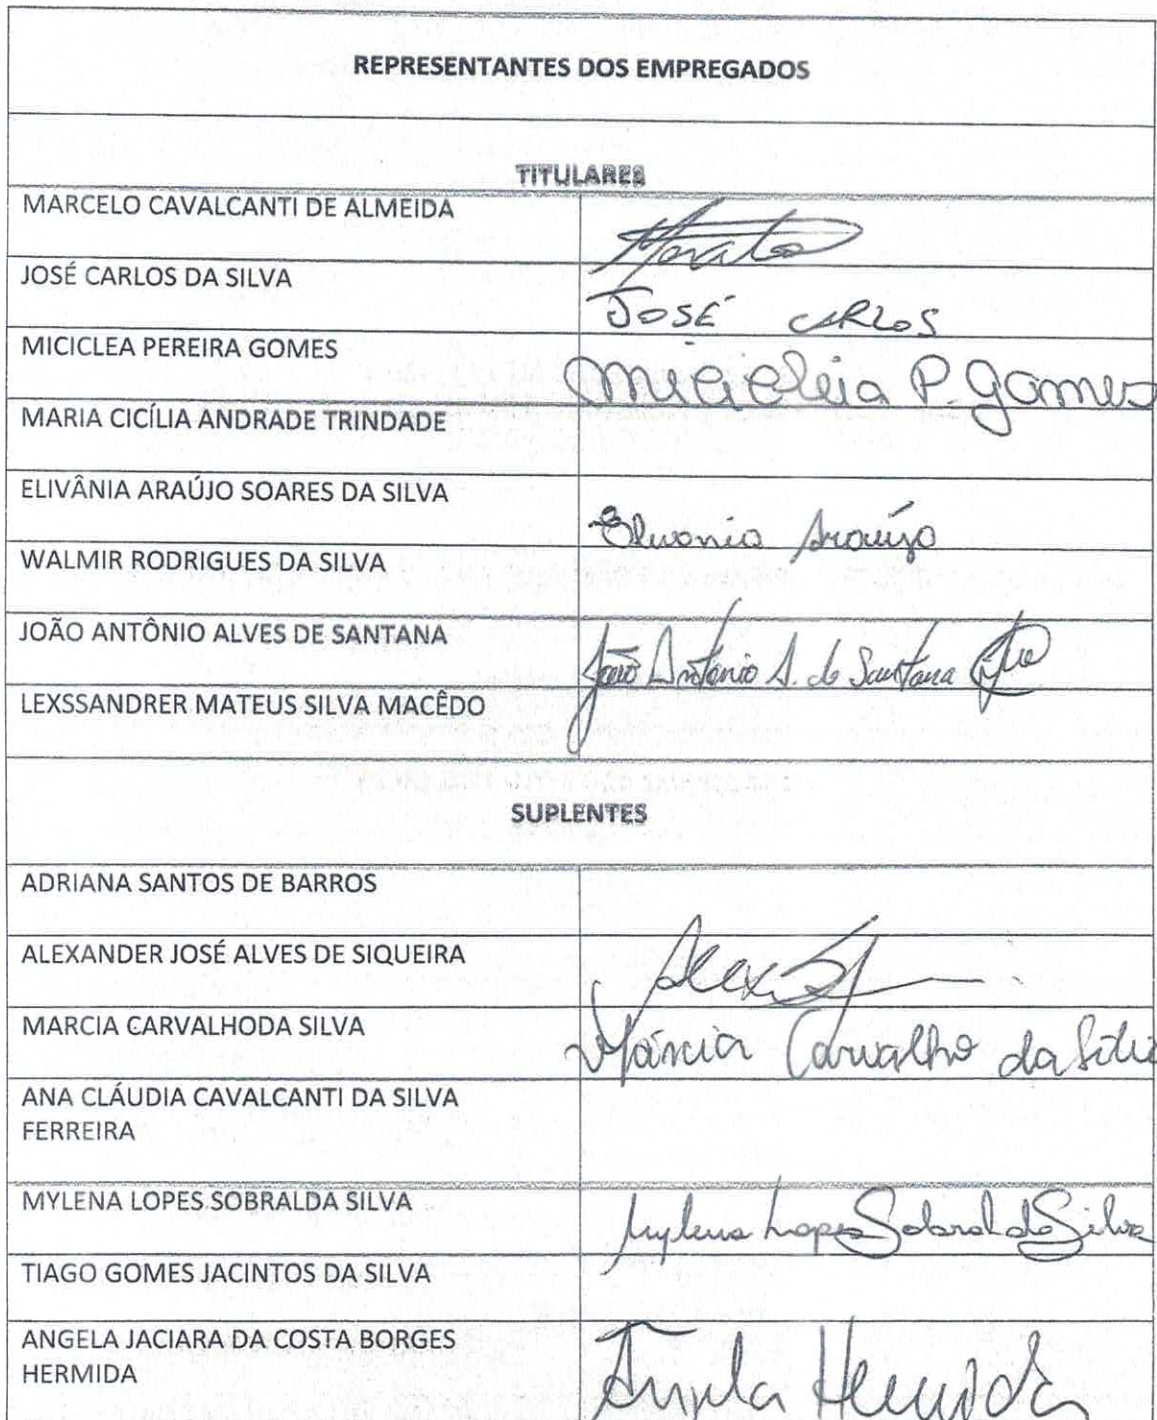 REPRESENTANTES DOS EMPREGADOS
TITULARES
MARCELO CAVALCANTI DE ALMEIDA
JOSÉ CARLOS DA SILVA
JOSÉ CARLOS
MICICLEA PEREIRA GOMES
Micicleia P. Gomes
MARIA CICÍLIA ANDRADE TRINDADE
ELIVÂNIA ARAÚJO SOARES DA SILVA
Elivania Araújo
WALMIR RODRIGUES DA SILVA
JOÃO ANTÔNIO ALVES DE SANTANA
João Antônio A. de Santana
LEXSSANDRER MATEUS SILVA MACÊDO
SUPLENTES
ADRIANA SANTOS DE BARROS
ALEXANDER JOSÉ ALVES DE SIQUEIRA
Alex
MARCIA CARVALHODA SILVA
Márcia Carvalho da Silva
ANA CLÁUDIA CAVALCANTI DA SILVA
FERREIRA
MYLENA LOPES SOBRALDA SILVA
Mylena Lopes Sobral da Silva
TIAGO GOMES JACINTOS DA SILVA
ANGELA JACIARA DA COSTA BORGES
HERMIDA
Angela Hermida